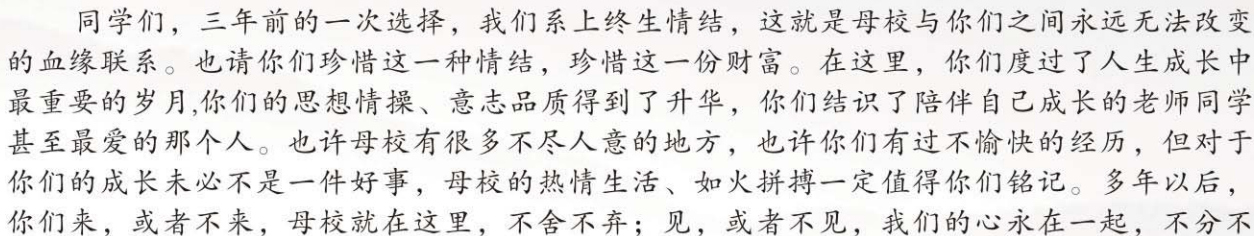 同学们，三年前的一次选择，我们系上终生情结，这就是母校与你们之间永远无法改变
的血缘联系。也请你们珍惜这一种情结，珍惜这一份财富。在这里，你们度过了人生成长中
最重要的岁月,你们的思想情操、意志品质得到了升华，你们结识了陪伴自己成长的老师同学
甚至最爱的那个人。也许母校有很多不尽人意的地方，也许你们有过不愉快的经历，但对于
你们的成长未必不是一件好事，母校的热情生活、如火拼搏一定值得你们铭记。多年以后，
你们来，或者不来，母校就在这里，不舍不弃；见，或者不见，我们的心永在一起，不分不